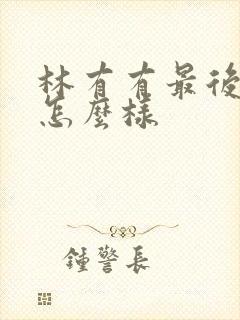 林有有最後
怎麼樣
鍾警長